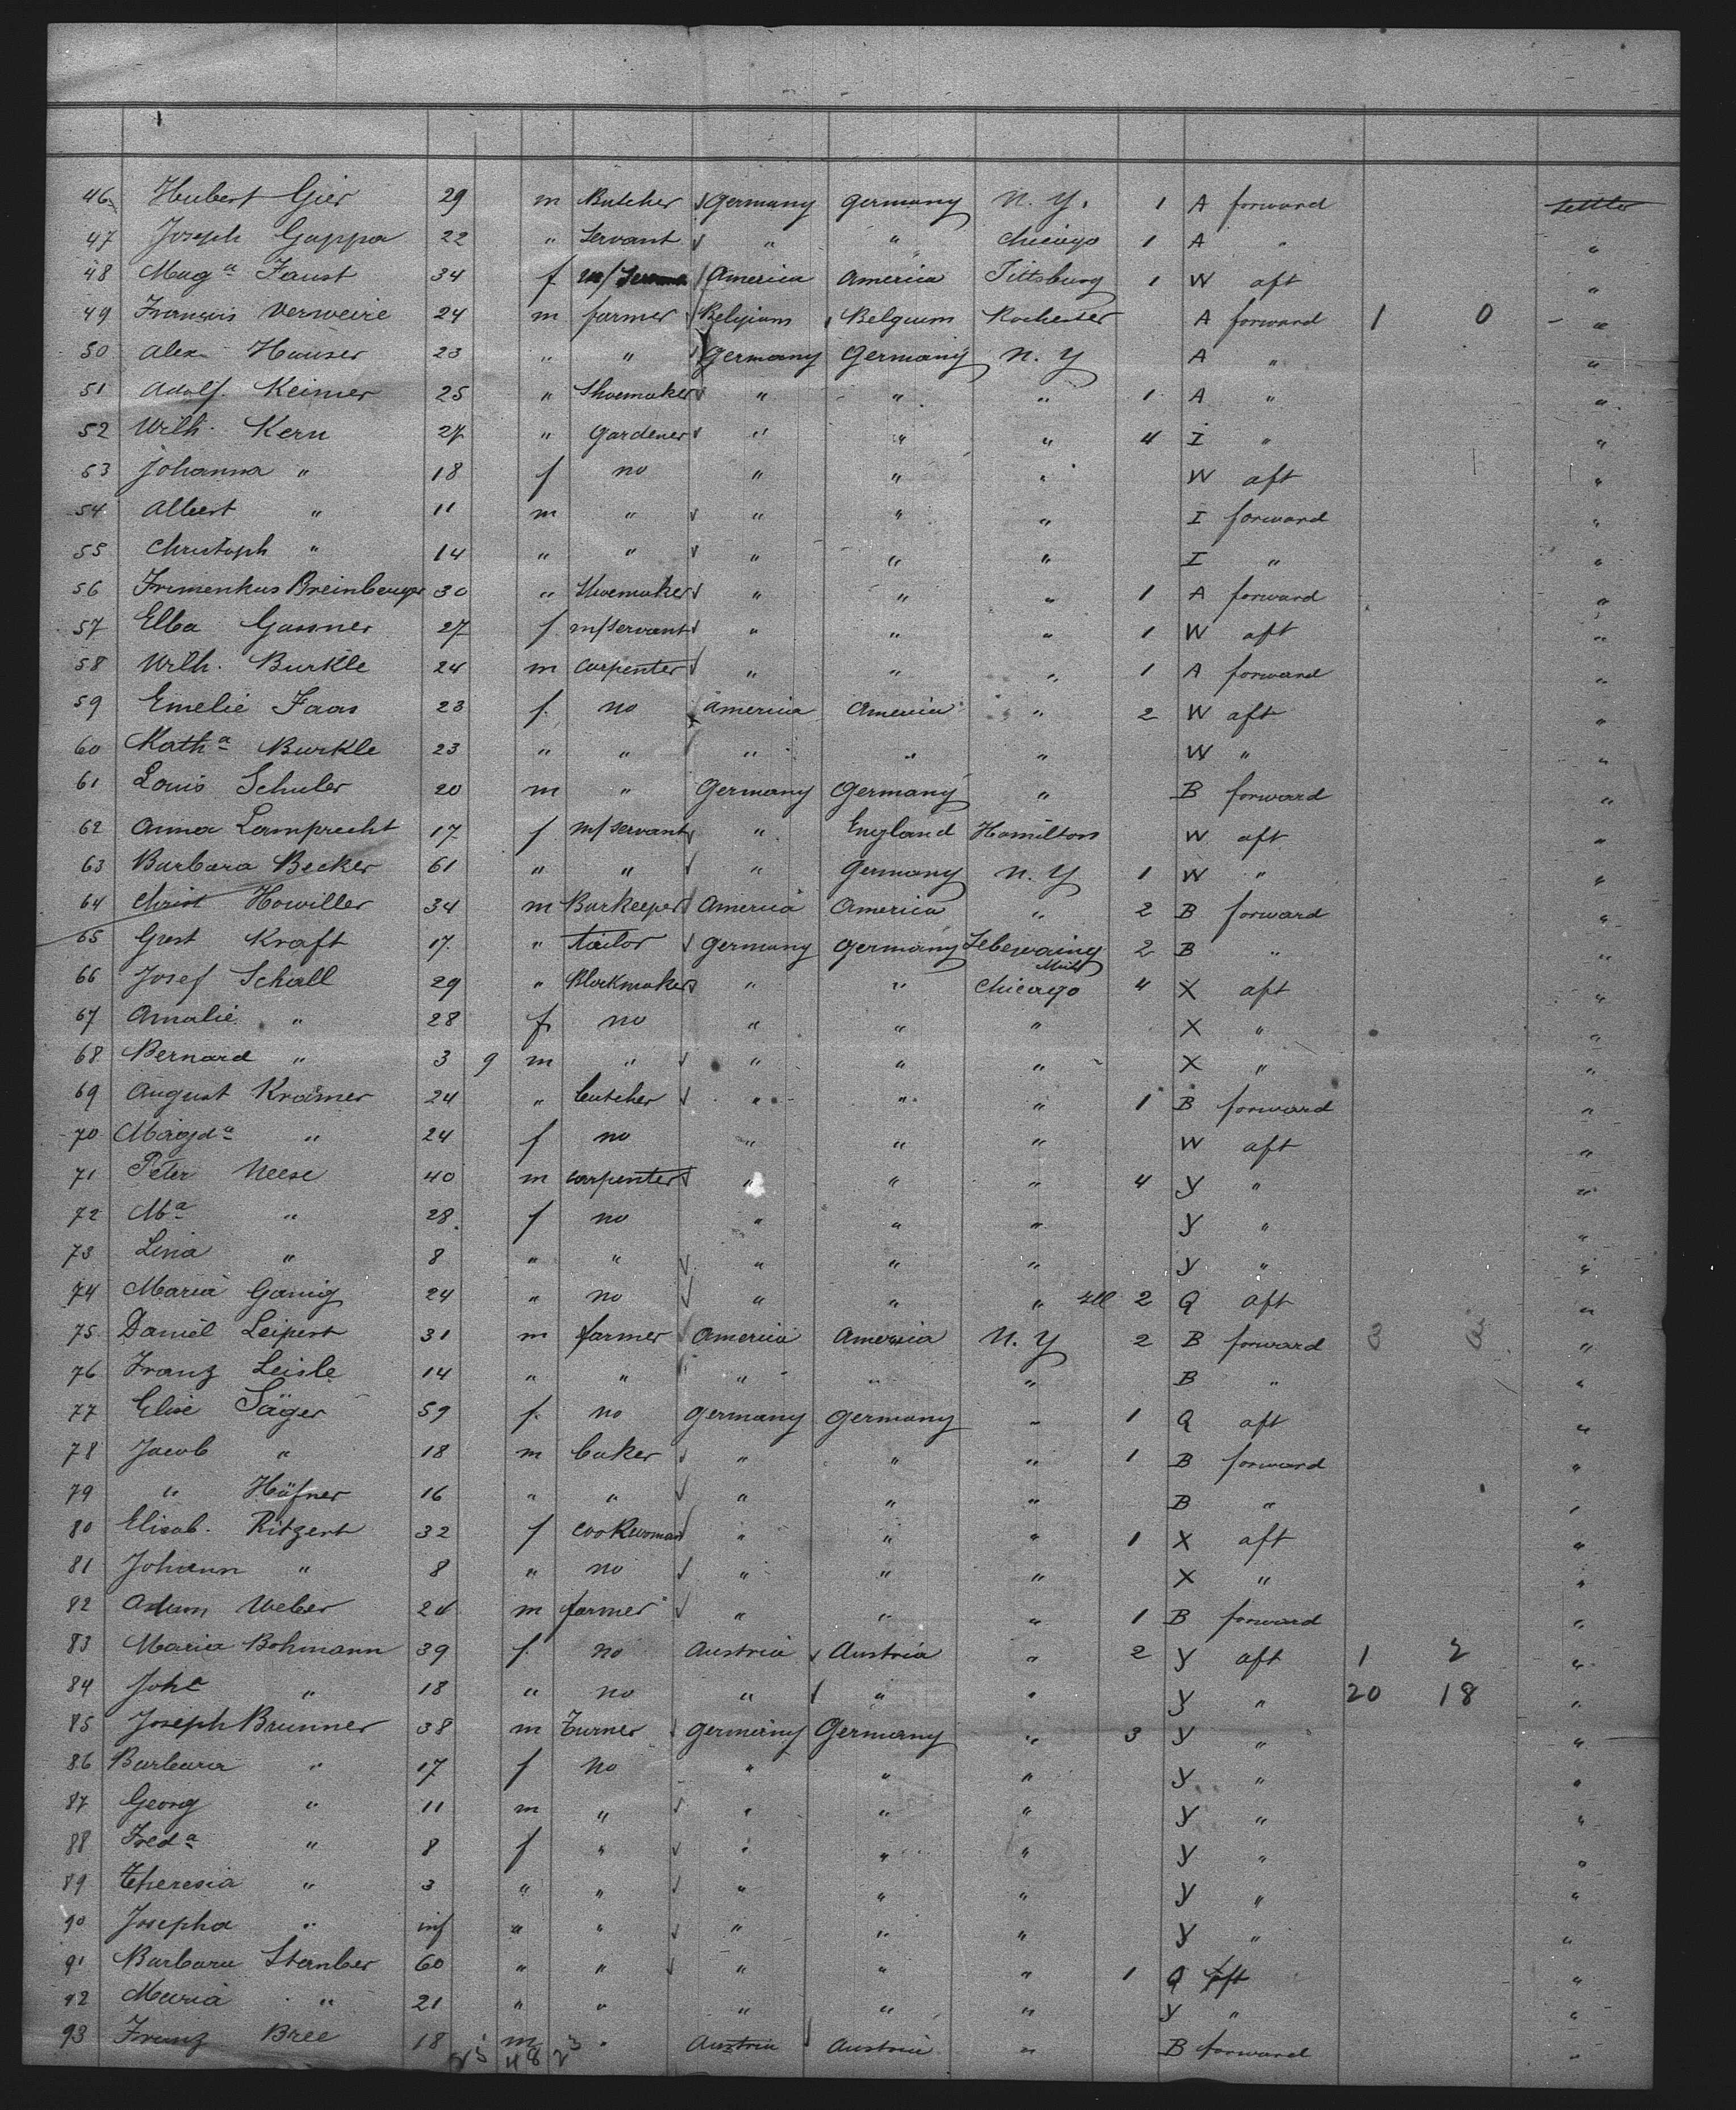 46 Hubert Gier 29 m Butcher √ Germany Germany N. Y. 1 A forward settler
47 Joseph Gappa 22 " Servant √ " " Chicago 1 A " "
48 Mag a Faust 34 f America America Pittsburg 1 W aft "
49 François Verweire 24 m farmer √ Belgium Belgium Rochester A forward 1 0 - "
50 Alex Hauser 23 " " √ Germany Germany N. Y A " "
51 Adolf. Keimer 25 " Shoemaker √ " " " 1 A " "
52 Wilh. Kern 27 " Gardener √ " " " 4 I " "
53 Johanna " 18 f no " " " W aft "
54 Albert " 11 m " √ " " " I forward "
55 Christoph " 14 " " √ " " " I " "
56 Breinberger 30 " Shoemaker √ " " " 1 A forward "
57 Elba Gassner 27 f m/servant √ " " " 1 W aft "
58 Wilh. Burkle 24 m carpenter √ " " " 1 A forward "
59 Emelie Faas 23 f. no America America " 2 W aft "
60 Kath a Burkle 23 " " " " " W " "
61 Louis Schuler 20 m " Germany Germany " B forward "
62 Anna Lamprecht 17 f m/servant √ " England Hamilton W aft "
63 Barbara Becker 61 " " √ " Germany N. Y 1 W " "
64 Christ Howiller 34 m Barkeeper √ America America " 2 B forward "
65 Gust Kraft 17 " tailor √ Germany Germany Sebewaing Mich 2 B " "
66 Josef Schall 29 " Klockmaker √ " " Chicago 4 X aft "
67 Amalie " 28 f no " " " X " "
68 Bernard " 3 9 m " √ " " " X " "
69 August Krämer 24 " butcher √ " " " 1 B forward "
70 Magd a " 24 f no " " " W aft "
71 Peter Neese 40 m carpenter √ " " " 4 Y " "
72 M a " 28 f no " " " Y " "
73 Lina " 8 " " √ " " " Y " "
74 Maria Ganig 24 " no √ " " " Ill 2 Q aft "
75 Daniel Leipert 31 m farmer √ America America N. Y 2 B forward "
76 Franz Leisle 14 " " " " " B " "
77 Elise Säger 59 f. no Germany Germany " 1 Q aft "
78 Jacob " 18 m baker √ " " " 1 B forward "
79 " Häfner 16 " " √ " " " B " "
80 Elisab. Ritzert 32 f cookwoman √ " " " 1 X aft "
81 Johann " 8 " no √ " " " X " "
82 Adam Weber 24 m farmer √ " " " 1 B forward "
83 Maria Bohmann 39 f. no Austria √ Austria " 2 Y aft 1 2 "
84 Joh a " 18 " no " √ " " Y " 20 18 "
85 Joseph Brunner 38 m Turner √ Germany Germany " 3 Y " "
86 Barbara " 17 f no " " " Y " "
87 Georg " 11 m " √ " " " Y " "
88 Fred a " 8 f " √ " " " Y " "
89 Theresia " 3 " " √ " " " Y " "
90 Josepha " inf " " √ " " " Y " "
91 Barbara Stamber 60 " " √ " " " 1 Q aft "
92 Maria " 21 " " " " " Y " "
93 Franz Bree 18 m " Austria √ Austria " B forward "
25 48 23